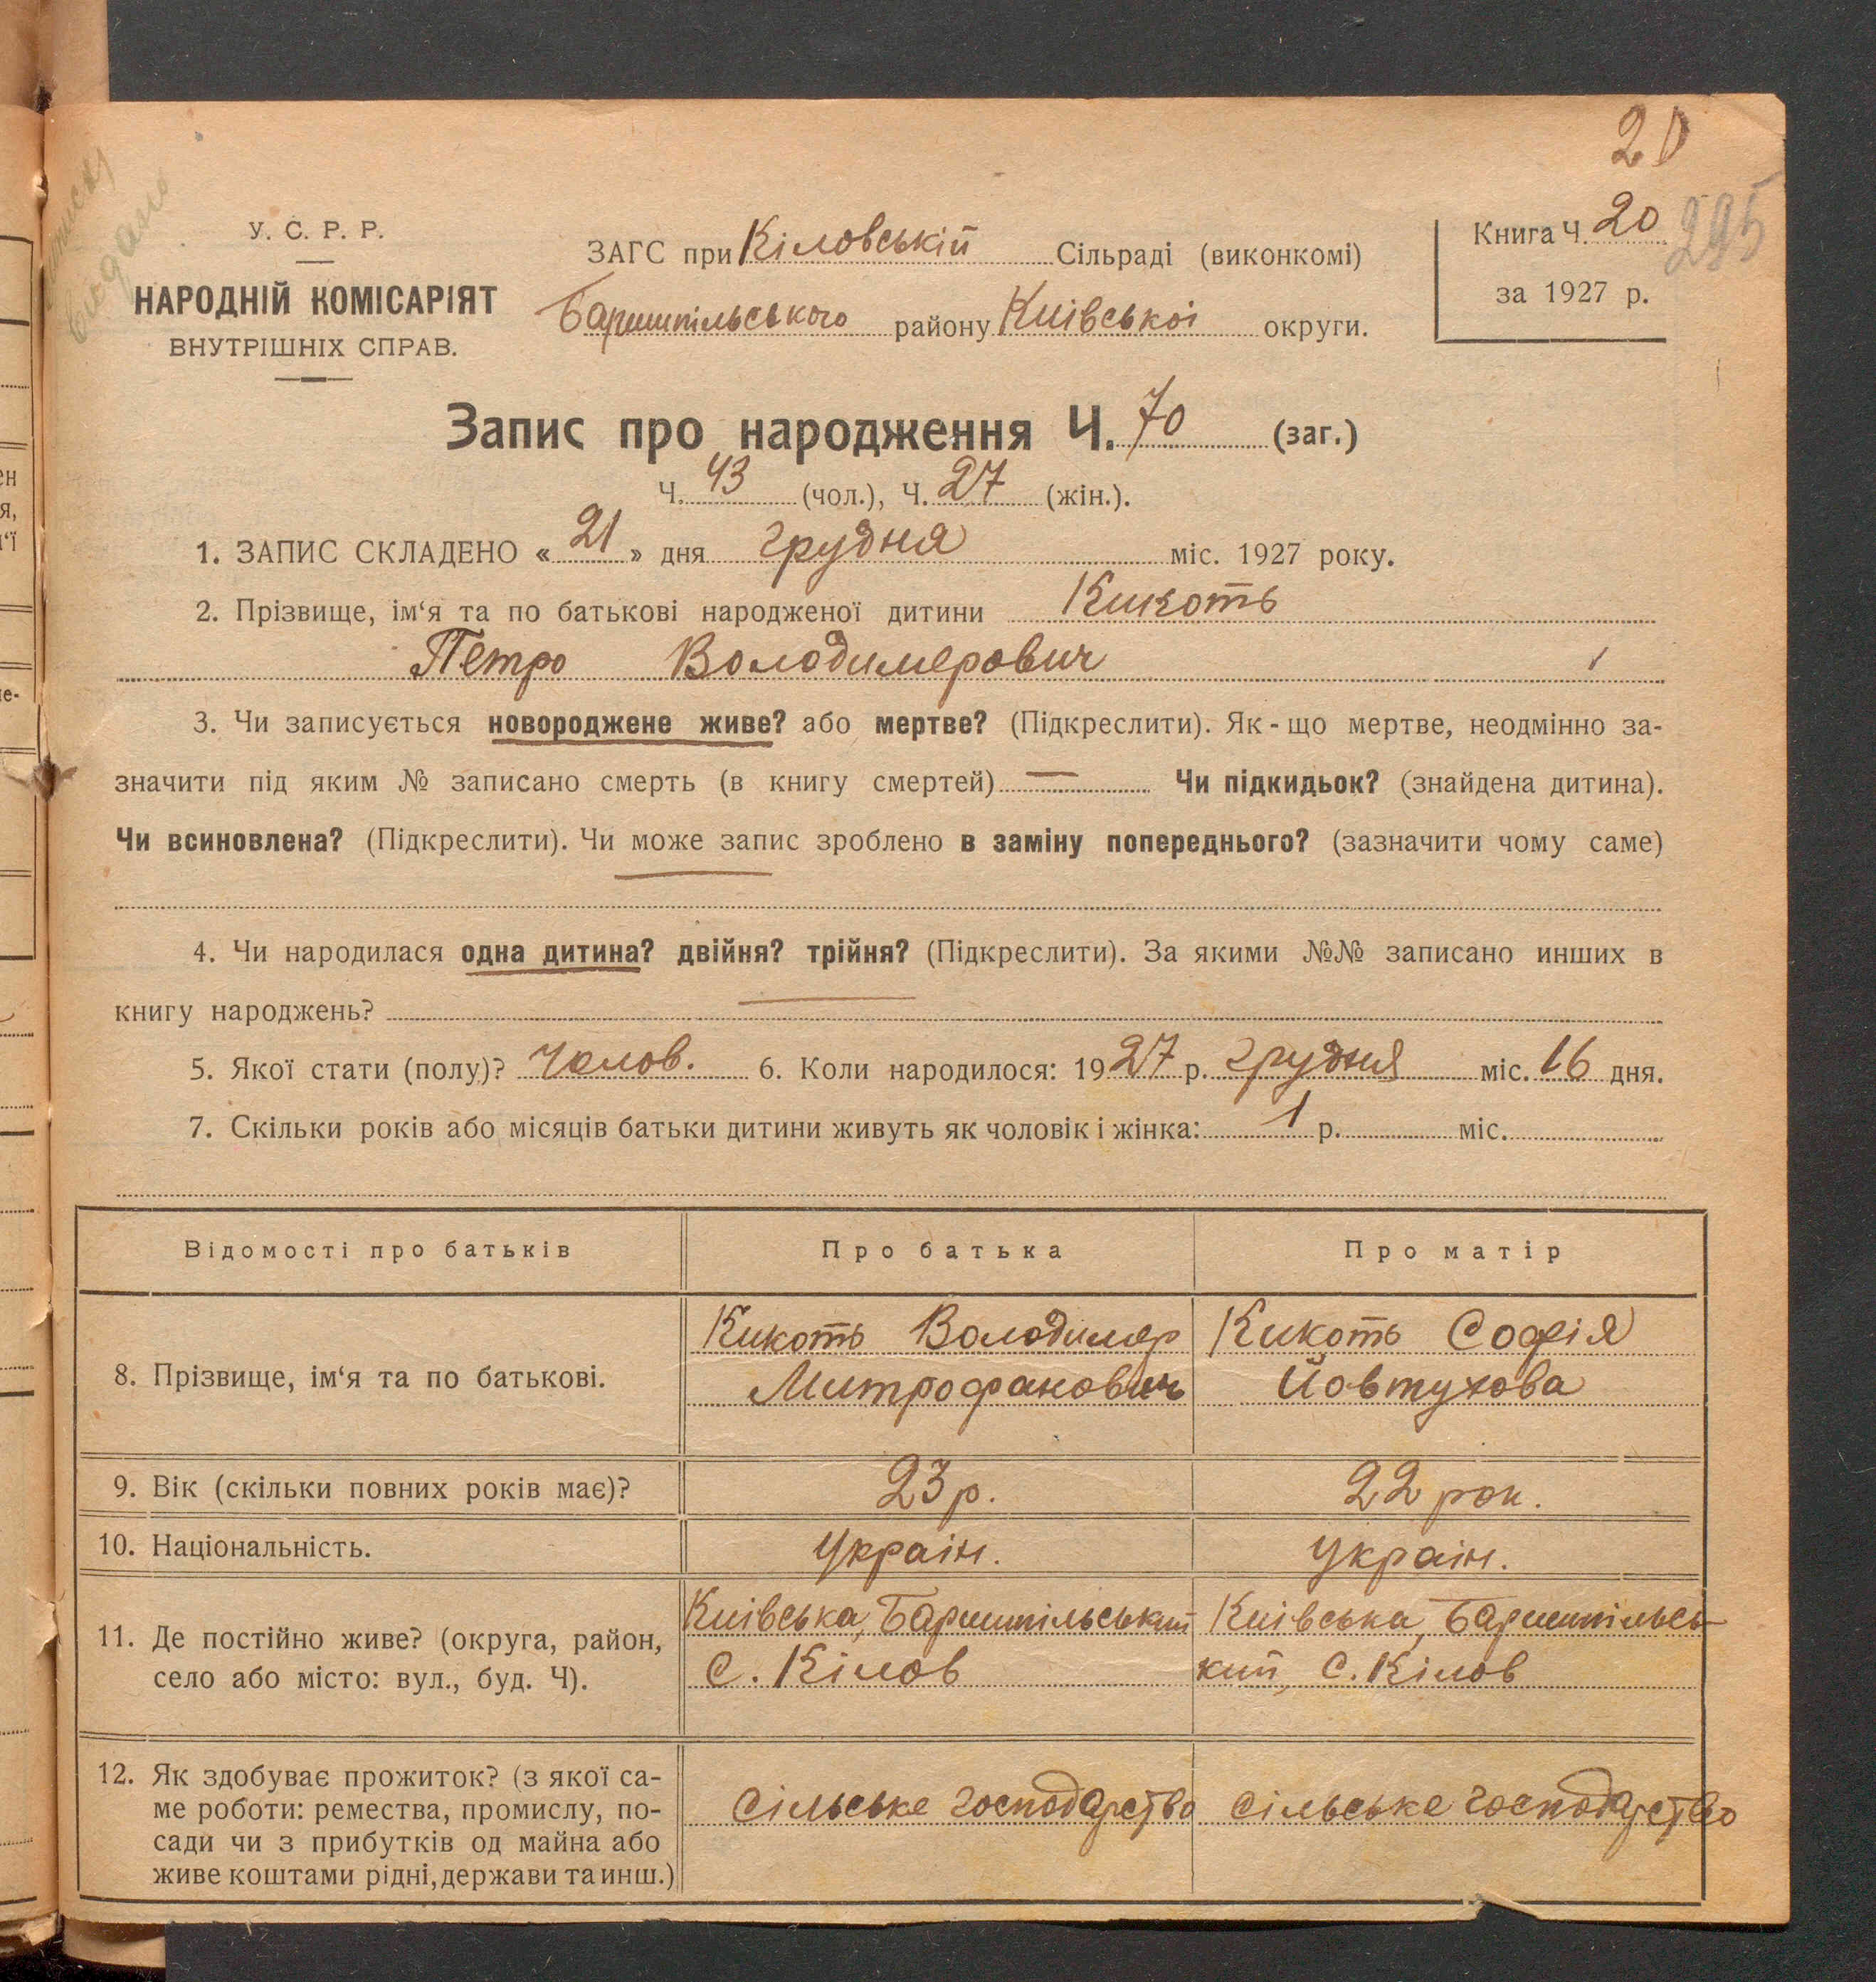 20
295
У. С. Р. Р.
НАРОДНІЙ КОМІСАРІЯТ
ВНУТРІШНІХ СПРАВ.
ЗАГС при Кіловській Сільраді (виконкомі)
Баришпільського району Київської округи.
Книга Ч. 20
за 1927 р.
Запис про народження Ч. 70 (заг.)
Ч. 43 (чол.), Ч. 27 (жін.).
1. ЗАПИС СКЛАДЕНО « 21 » дня грудня міс. 1927 року.
2. Прізвище, ім‘я та по батькові народженої дитини Кикоть
Петро Володимерович
3. Чи записується новороджене живе? або мертве? (Підкреслити). Як-що мертве, неодмінно за-
значити під яким № записано смерть (в книгу смертей) — Чи підкидьок? (знайдена дитина).
Чи всиновлена? (Підкреслити). Чи може запис зроблено в заміну попереднього? (зазначити чому саме)
4. Чи народилася одна дитина? двійня? трійня? (Підкреслити). За якими №№ записано инших в
книгу народжень?
5. Якої стати (полу)? Чолов. 6. Коли народилося: 1927 р. грудня міс. 16 дня.
7. Скільки років або місяців батьки дитини живуть як чоловік і жінка: 1 р. міс.
Відомості про батьків Про батька Про матір
8. Прізвище, ім‘я та по батькові.
Кикоть Володимер
Митрофанович
Кикоть Софія
Йовтухова
9. Вік (скільки повних років має)? 23 р. 22 рок.
10. Національність. Україн. Україн.
11. Де постійно живе? (округа, район,
село або місто: вул., буд. Ч).
Київська, Баришпільський
с. Кілов
Київська, Баришпільсь-
кий, с. Кілов
12. Як здобуває прожиток? (з якої са-
ме роботи: ремества, промислу, по-
сади чи з прибутків од майна або
живе коштами рідні, держави та инш.)
сільське господарство
сільське господарство